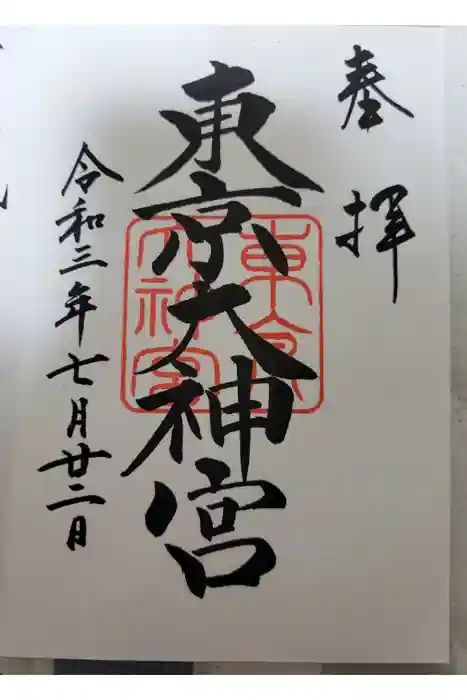 奉拝
東京大神宮
東京大神宮
令和三年七月廿二日